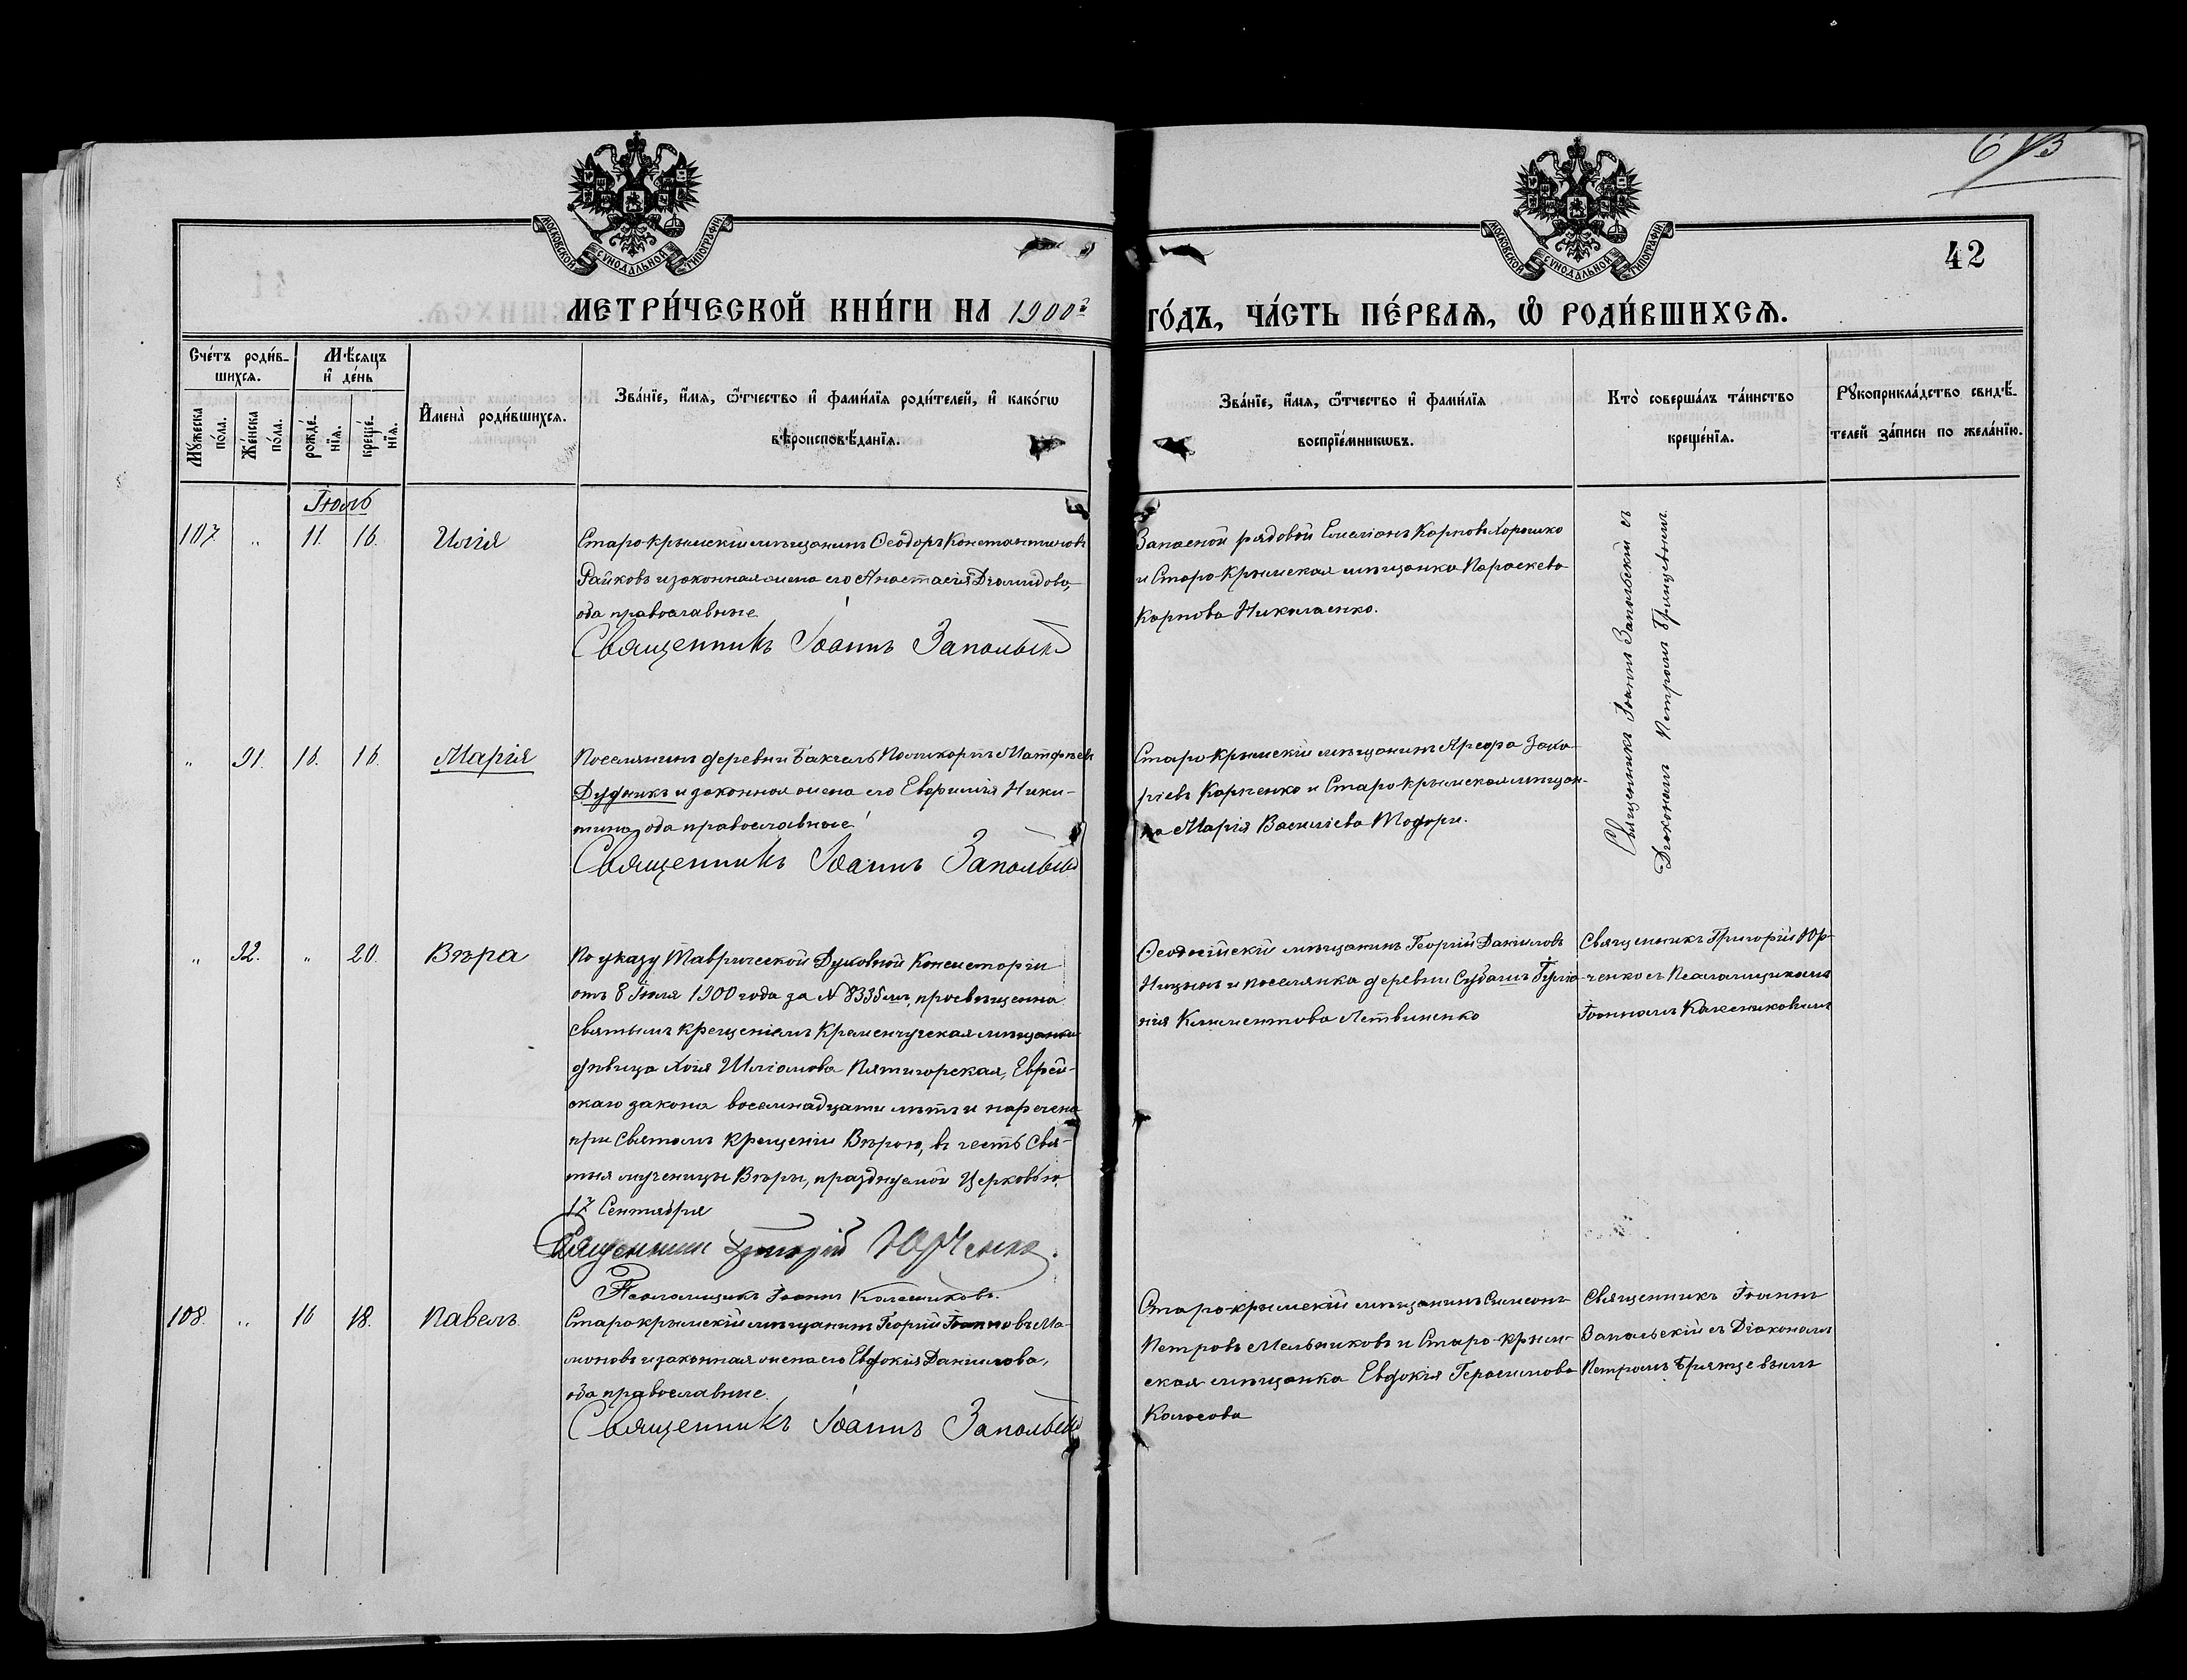 МОСКОВСКОЙ СѴНОДАЛЬНОЙ ТИПОГРАФІИ
МОСКОВСКОЙ СѴНОДАЛЬНОЙ ТИПОГРАФІИ
42
МЕТРИ́ЧЕСКОЙ КНИ́ГИ НА 1900й ГО́ДЪ, ЧА́СТЬ ПЕ́РВАѦ, Ѽ РОДИ́ВШИХСѦ.
Сче́тъ роди́в-
шихсѧ.
Мꙋжеска по́ла.
Же́нска по́ла.
М҄ѣсѧцъ
и҆ де́нь
рожде́-
нїѧ.
креще́-
нїѧ.
И҆мена̀ роди́вшихсѧ.
Зва́нїе, и҆́мѧ, ѻ҆́тчество и҆ фами́лїѧ роди́телей, и҆ како́гѡ
вѣроисповѣ́данїѧ.
Зва́нїе, и҆́мѧ, ѻ҆́тчество и҆ фами́лїѧ
воспрїе́мникѡвъ.
Кто̀ соверша́лъ та́инство
креще́нїѧ.
Рꙋкоприкла́дство свидѣ́-
телей за́писи по жела́нїю.
Іюль
107. „ 11. 16. Илія
Старо-крымскій мѣщанинъ Ѳеодоръ Константиновъ
Райковъ и законная жена его Анастасія Діомидова,
оба православные.
Священникъ Іоаннъ Запольскій
Запасной рядовой Емеліанъ Карповъ Хорошко
и Старо-Крымская мѣщанка Параскева
Карпова Николаенко.
Священникъ Іоаннъ Запольскій съ
Діакономъ Петромъ Брянцевымъ.
„ 91. 16. 16. Марія
Поселянинъ деревни Бакчель Поликарпъ Матфѣевъ
Дудникъ и законная жена его Евфимія Ники-
тина, оба православные.
Священникъ Іоаннъ Запольскій
Старо-Крымскій мѣщанинъ Арефа Заха-
ріевъ Карпенко и Старо-крымская мѣщан-
ка Марія Василіева Тофори.
„ 92. „ 20. Вѣра
По указу Таврической Духовной Консисторіи
отъ 8 Іюля 1900 года за № 8335мъ, просвѣщенна
святымъ крещеніемъ Кременчугская мѣщанка
дѣвица Хая Шліомова Пятигорская, Еврей-
скаго закона восемнадцати лѣтъ и наречена
при Святомъ крещеніи Вѣрою, въ честь Свя-
тыя мученицы Вѣры, празднуемой Церковью
17 Сентября
Священникъ Григорій Юрченко.
Псаломщикъ Іоаннъ Колесниковъ.
Ѳеодосійскій мѣщанинъ Георгій Даніиловъ
и поселянка деревни Субашъ
Климентова Летвиненко
Священникъ Григорій Юр-
ченко съ Псаломщикомъ
Іоанномъ Колесниковымъ
108. „ 16 18. Павелъ
Старокрымскій мѣщанинъ Георгій Іоанновъ Ма-
моновъ и законная жена его Евдокія Даніилова,
оба православные.
Священникъ Іоаннъ Запольскій
Старо-крымскій мѣщанинъ Симеонъ
Петровъ Мельниковъ и Старо-крым-
ская мѣщанка Евдокія Герасимова
Колосова
Священникъ Іоаннъ
Запольскій съ Діакономъ
Петромъ Брянцевымъ